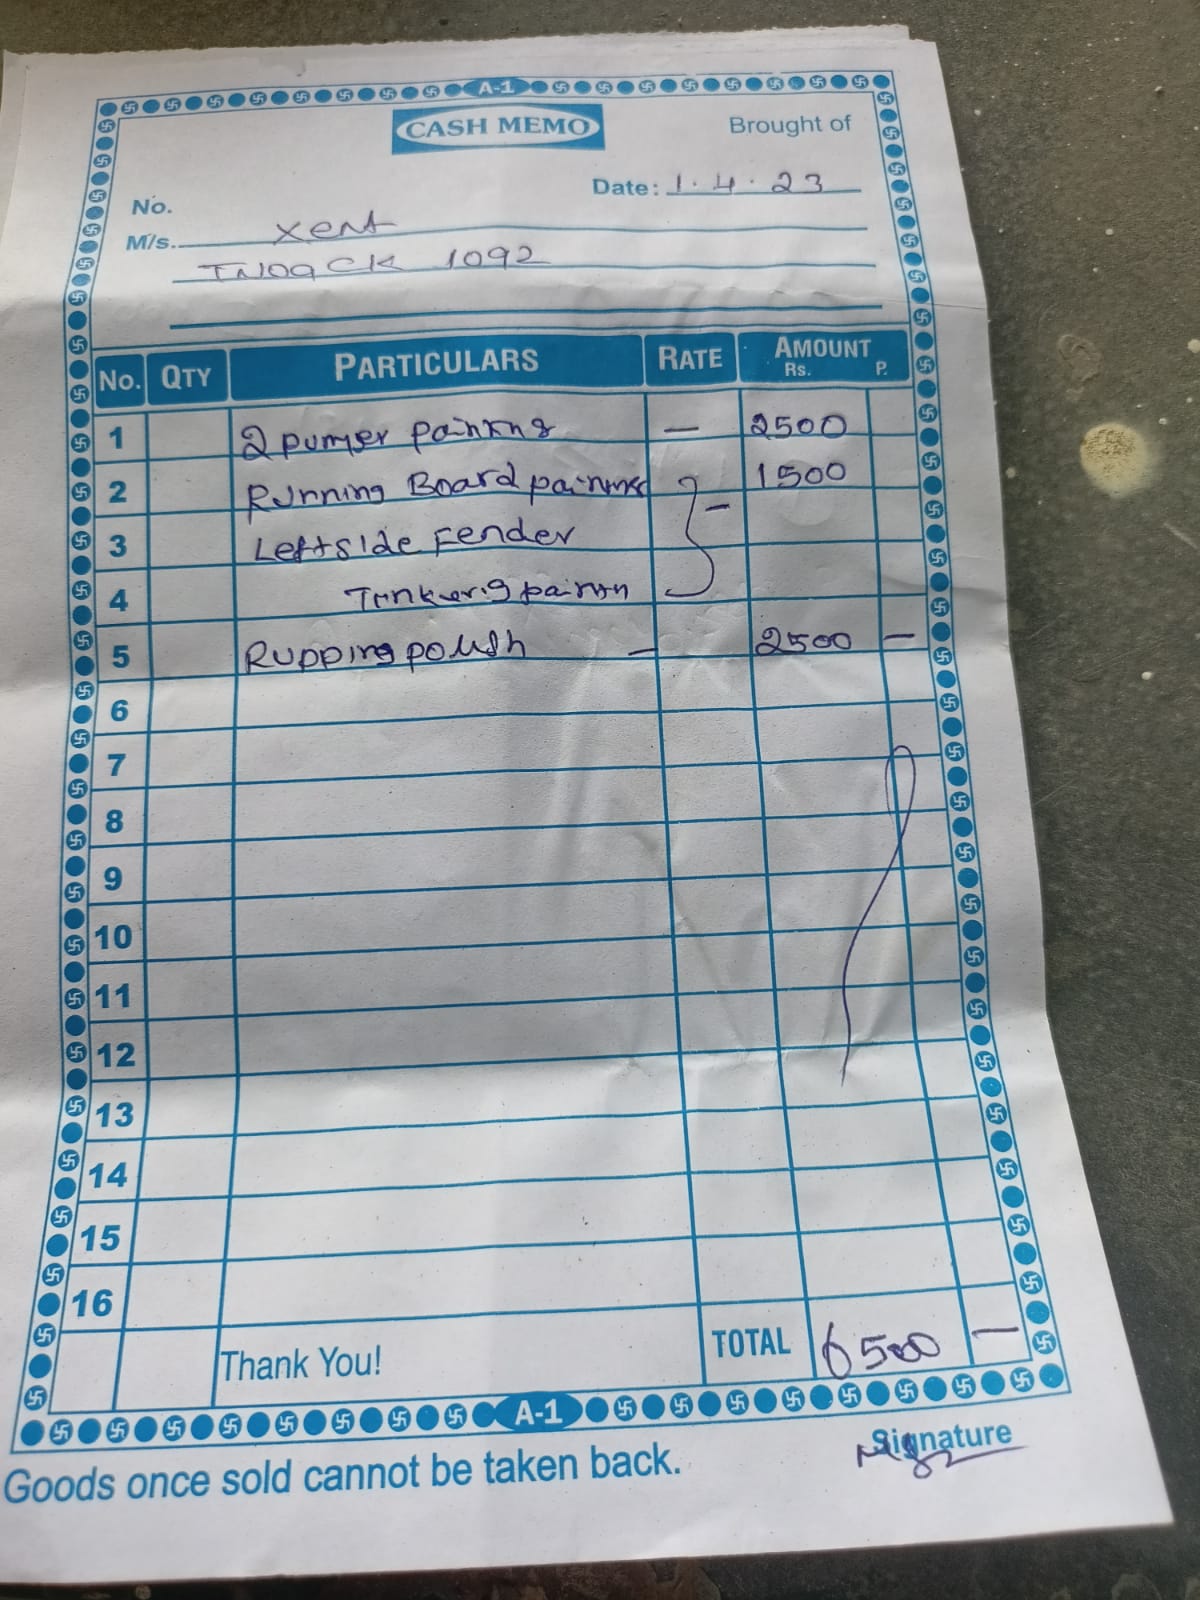 A-1
CASH MEMO
Brought of
Date: 1.4.23
No.
M/s. Xent
TN09CK 1092
No. QTY PARTICULARS RATE AMOUNT
Rs. P.
1 2 pumper painting — 2500
2 Running Board painting 1500
3 Leftside Fender —
4 Tinkering paintin
5 Rupping polish — 2500 —
6
7
8
9
10
11
12
13
14
15
16
Thank You! TOTAL 6500 —
A-1
Signature
Goods once sold cannot be taken back.